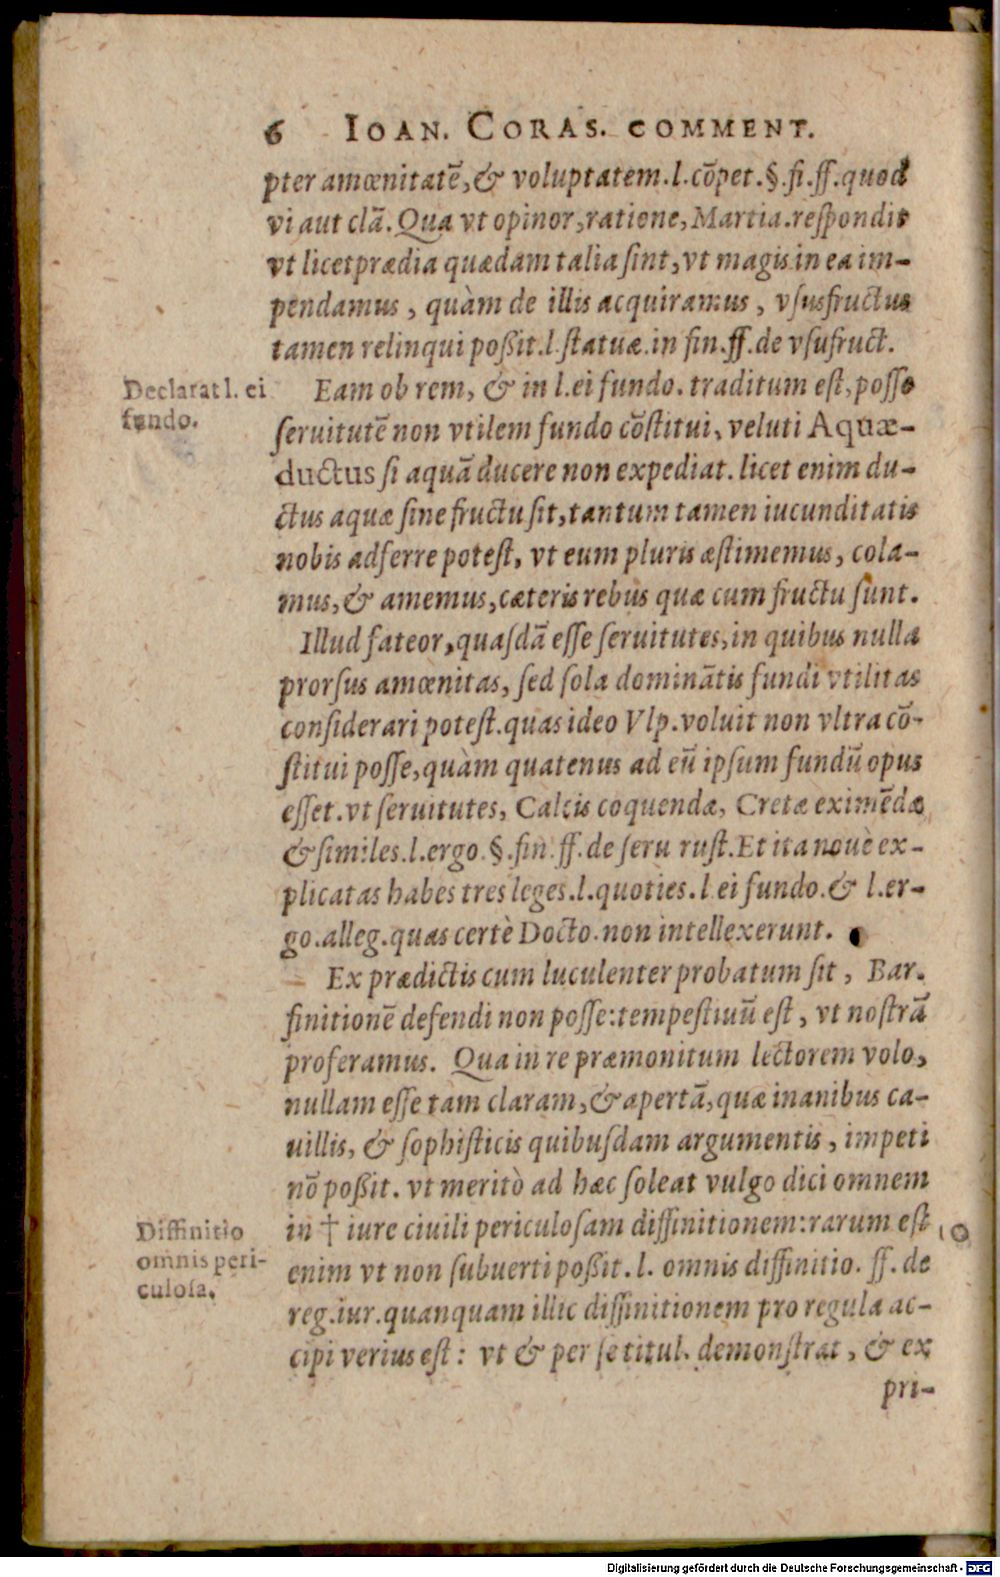 6 IOAN. CORAS. COMMENT.
pter amœnitatē, & voluptatem. l. cōpet. §. fi. ff. quod
vi aut clā. Qua vt opinor, ratione, Martia. reſpondit
vt licet prædia quædam talia ſint, vt magis in ea im-
pendamus, quàm de illis acquiramus, vſusfructus
tamen relinqui poßit. l. ſtatuæ. in fin. ff. de vſufruct.
Declarat l. ei
fundo.
Eam ob rem, & in l. ei fundo. traditum eſt, poſſe
ſeruitutē non vtilem fundo cōſtitui, veluti Aquæ-
ductus ſi aquā ducere non expediat. licet enim du-
ctus aquæ ſine fructu ſit, tantum tamen iucunditatis
nobis adferre poteſt, vt eum pluris æſtimemus, cola-
mus, & amemus, cæteris rebus quæ cum fructu ſunt.
Illud fateor, quaſdā eſſe ſeruitutes, in quibus nulla
prorſus amœnitas, ſed ſola dominātis fundi vtilitas
conſiderari poteſt. quas ideo Vlp. voluit non vltra cō-
ſtitui poſſe, quàm quatenus ad eū ipſum fundū opus
eſſet. vt ſeruitutes, Calcis coquendæ, Cretæ eximēdæ
& ſimiles. l. ergo. §. fin. ff. de ſeru ruſt. Et ita nouè ex-
plicatas habes tres leges. l. quoties. l ei fundo. & l. er-
go. alleg. quas certè Docto. non intellexerunt.
Ex prædictis cum luculenter probatum ſit, Bar.
finitionē defendi non poſſe: tempeſtiuū eſt, vt noſtrā
proferamus. Qua in re præmonitum lectorem volo,
nullam eſſe tam claram, & apertā, quæ inanibus ca-
uillis, & ſophiſticis quibuſdam argumentis, impeti
nō poßit. vt meritò ad hæc ſoleat vulgo dici omnem
Diffinitio
omnis peri-
culoſa.
in † iure ciuili periculoſam diffinitionem: rarum eſt 10
enim vt non ſubuerti poßit. l. omnis diffinitio. ff. de
reg. iur. quanquam illic diffinitionem pro regula ac-
cipi verius eſt: vt & per ſe titul. demonſtrat, & ex
pri-
Digitalisierung gefördert durch die Deutsche Forschungsgemeinschaft - DFG